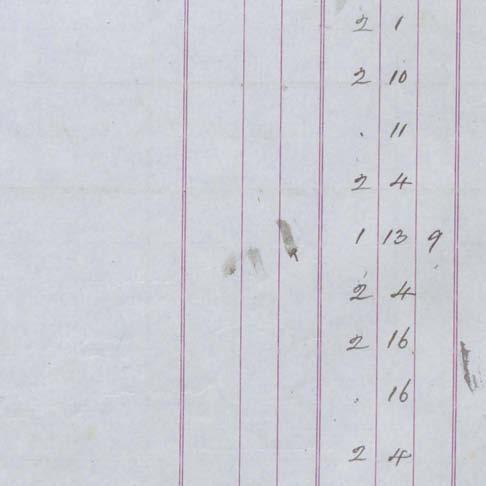 2 1
2 10
. 11
2 4
1 13 9
2 4
2 16
. 16
2 4